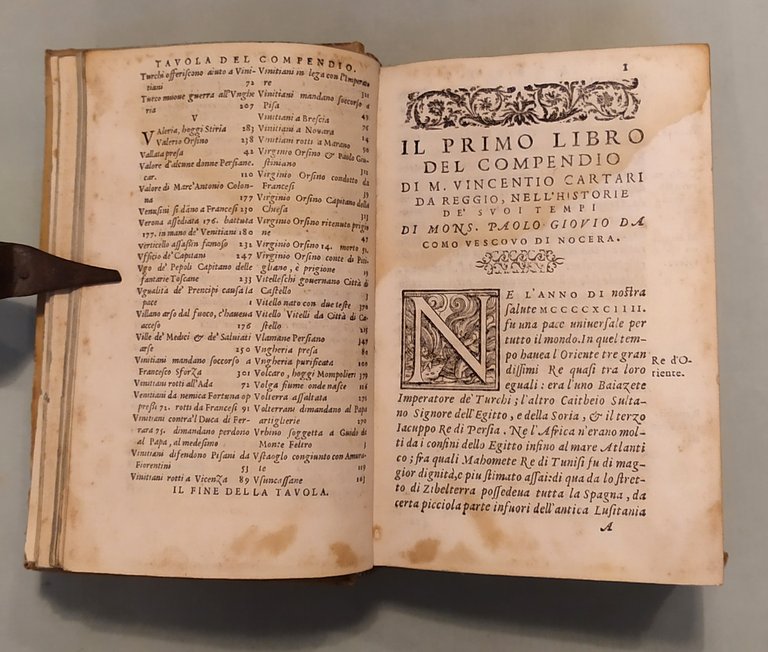 TAVOLA DEL COMPENDIO.
Turchi offeriscono aiuto a Vini-
tiani 72
Turco muoue guerra all'Vnghe
ria 207
V
Valeria, hoggi Stiria 283
Valerio Orsino 238
Vallata presa 42
Valore d'alcune donne Persiane.
car. 110
Valore di Marc'Antonio Colon-
na 177
Venusini si dāno a Francesi 230
Verona assediata 176. battuta
177. in mano de' Venitiani 180
Verticello assassin famoso 231
Vfficio de' Capitani 247
Vgo de' Pepoli Capitano delle
fantarie Toscane 233
Vgualità de' Prencipi causa la
pace 1
Villano arso dal fuoco, c'haueua
acceso 176
Ville de' Medici & de' Saluiati
arse 250
Vinitiani mandano soccorso a
Francesco Sforza 301
Vinitiani rotti all'Ada 72
Vinitiani da nemica Fortuna op
presi 71. rotti da Francesi 91
Vinitiani contra'l Duca di Fer-
rara 75. dimandano perdono
al Papa, al medesimo
Vinitiani difendono Pisani da
Fiorentini 53
Vinitiani rotti a Vicenza 89
Vinitiani in lega con l'Imperato
re
Vinitiani mandano soccorso a
Pisa 49
Vinitiani a Brescia
Vinitiani a Nouara 14
Vinitiani rotti a Marano
Virginio Orsino & Paolo Giu-
stiniano
Virginio Orsino condotto da
Francesi
Virginio Orsino Capitano della
Chiesa
Virginio Orsino ritenuto prigio
ne
Virginio Orsino 14. morto 51
Virginio Orsino conte di Piti-
gliano, è prigione 19
Vitelleschi gouernano Città di
Castello
Vitello nato con due teste
Vitello Vitelli da Città di Ca-
stello
Vlamane Persiano
Vngheria presa
Vngheria purificata
Volcaro, hoggi Mompolieri
Volga fiume onde nasce
Volterra assaltata
Volterrani dimandano al Papa
artiglierie
Vrbino soggetta a Guido di
Monte Feltro
Vstaoglo congiunto con Amura-
te 119
Vsuncassane 163
IL FINE DELLA TAVOLA.
1
IL PRIMO LIBRO
DEL COMPENDIO
DI M. VINCENTIO CARTARI
DA REGGIO, NELL'HISTORIE
DE' SVOI TEMPI
DI MONS. PAOLO GIOVIO DA
COMO VESCOVO DI NOCERA.
NE L'ANNO DI nostra
salute MCCCCXCIIII.
fu una pace uniuersale per
tutto il mondo. In quel tem-
po haueua l'Oriente tre gran
dissimi Re quasi tra loro
eguali: era l'uno Baiazete
Imperatore de' Turchi; l'altro Caitbeio Sulta-
no Signore dell'Egitto, e della Soria, & il terzo
Iacuppo Re di Persia. Ne l'Africa n'erano mol-
ti da i confini dello Egitto infino al mare Atlanti
co; fra quali Mahomete Re di Tunisi fu di mag-
gior dignità, e piu stimato assai: di qua da lo stret-
to di Zibelterra possedeua tutta la Spagna, da
certa picciola parte infuori dell'antica Lusitania
Re d'O-
riente.
A